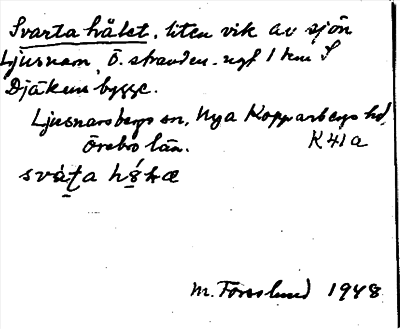 Svarta hålet, liten vik av sjön
Ljusnaren, Ö. stranden. ungf 1 km S
Djäken bygge.
Ljusnarsbergs sn, Nya Kopparbergs hd,
Örebro län. K 41 a
M. Forslund 1948